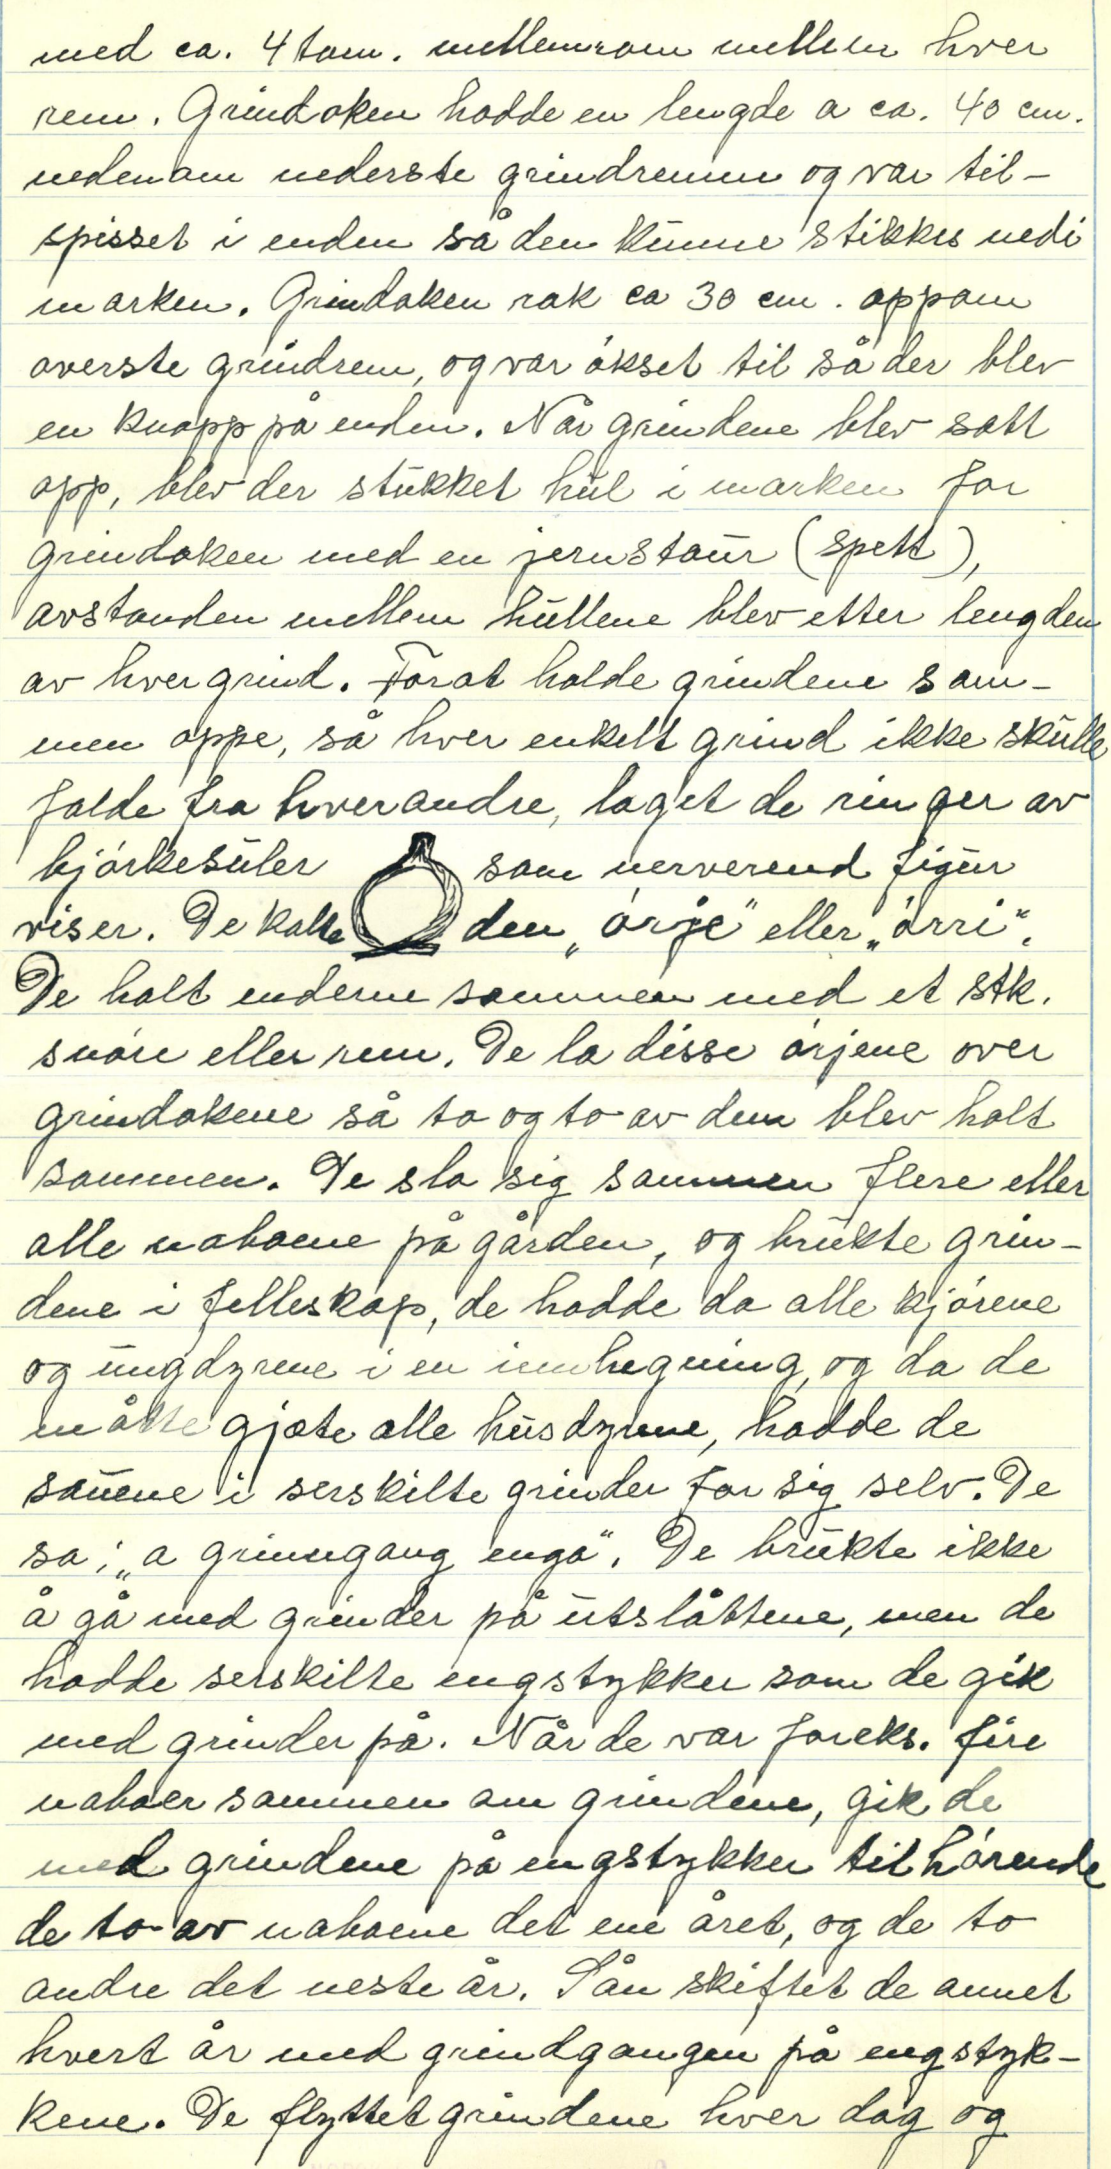 med ca. 4 tom. mellemrom mellem hver
rem. Grindoken hadde en lengde a ca. 40 cm.
nedenom nederste grindremm og var til-
spisset i enden så den kunne stikkes nedi
marken. Grindoken rak ca 30 cm. oppom
øverste grindrem, og var økset til så der blev
en knapp på enden. Når grindene blev satt
opp, blev der stukket hul i marken for
grindoken med en jernstaur (spett),
avstanden mellem hullene blev etter lengden
av hver grind. Forat holde grindene sam-
men oppe, så hver enkelt grind ikke skulle
falde fra hverandre, laget de ringer av
bjørkesuler som nerverend figur
viser. De kalte den „ørje" eller „ørri".
De holt enderne sammen med et stk.
snøre eller rem. De la disse ørjene over
grindokene så to og to av dem blev holt
sammen. De slo sig sammen flere eller
alle naboene på gården, og brukte grin-
dene i felleskap, de hadde da alle kjørene
og ungdyrene i en innhegning, og da de
måtte gjæte alle husdyrene, hadde de
sauene i serskilte grinder for sig selv. De
sa; „a grinngang enga". De brukte ikke
å gå med grinder på utslåttene, men de
hadde serskilte engstykker som de gik
med grinder på. Når de var foreks. fire
naboer sammen om grindene, gik de
med grindene på engstykker tilhørende
de to av naboene det ene året, og de to
andre det neste år. Sån skiftet de annet
hvert år med grindgangen på engstyk-
kene. De flyttet grindene hver dag og